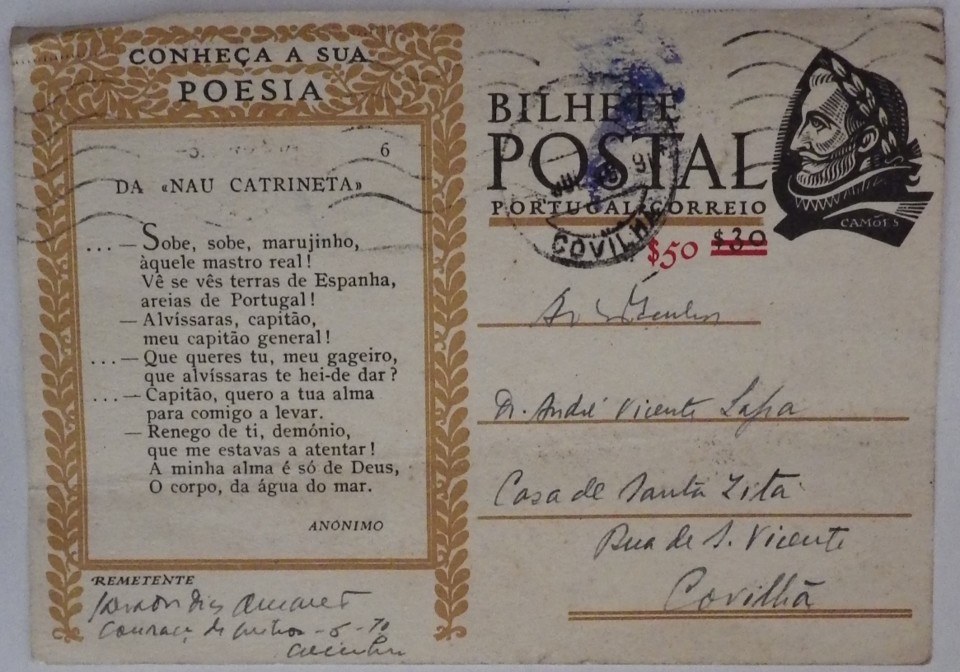 CONHEÇA A SUA
POESIA
6
DA «NAU CATRINETA»
...—Sobe, sobe, marujinho,
àquele mastro real!
Vê se vês terras de Espanha,
areias de Portugal!
—Alvíssaras, capitão,
meu capitão general!
...—Que queres tu, meu gageiro,
que alvíssaras te hei-de dar?
...—Capitão, quero a tua alma
para comigo a levar.
—Renego de ti, demónio,
que me estavas a atentar!
A minha alma é só de Deus,
O corpo, da água do mar.
ANÓNIMO
REMETENTE
BILHETE
POSTAL
PORTUGAL CORREIO
CAMÕES
$50 $30
COVILHÃ
Dr. André Vicente Lapa
Casa de Santa Zita
Rua de S. Vicente
Covilhã